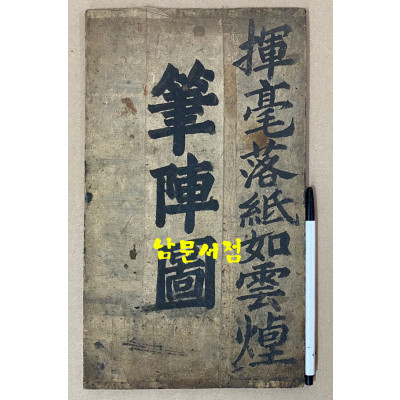 揮毫落紙如雲煌
筆陣圖
남문서점